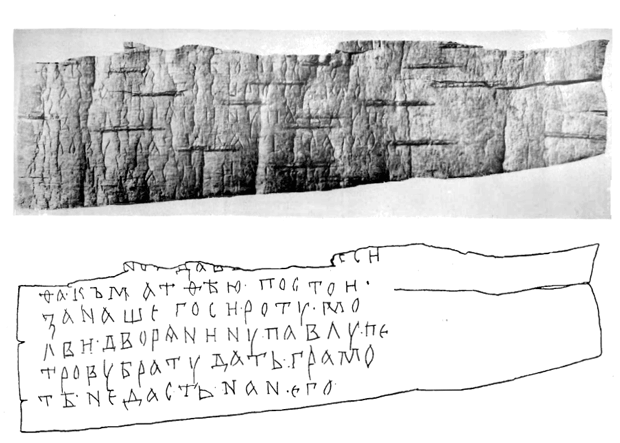 ЕСИ
ѲА·КЪМАТѲѢЮ·ПОСТОИ·
ЗАНАШЕГОСИРОТУ·МО
ЛВИ·ДВОРѦНИНУ·ПАВЛУ·ПЕ
ТРОВУБРАТУ ДАТЬ·ГРАМО
ТѢ·НЕДАСТЬ·НАН·ЕГО